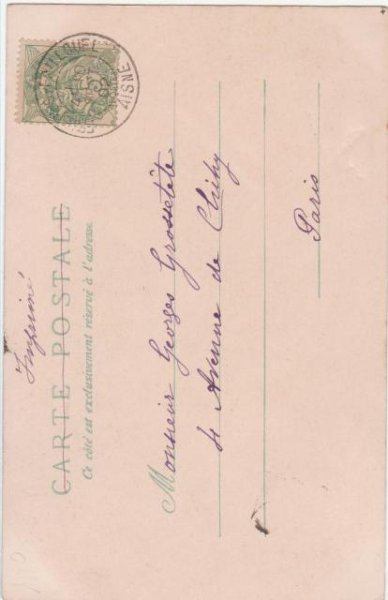 Imprimé
CARTE POSTALE
Ce côté est exclusivement réservé à l'adresse
Monsieur Georges Grossetête
Avenue de Clichy
Paris
AISNE
5